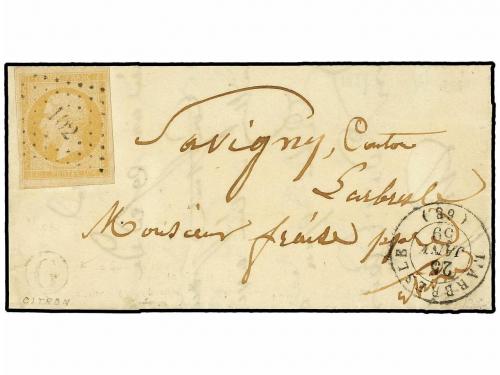 162
Savigny, Canton
Larbresle
Monsieur fraise
L'ARBRESLE
25
JANV
59
(68)
C
CITRON